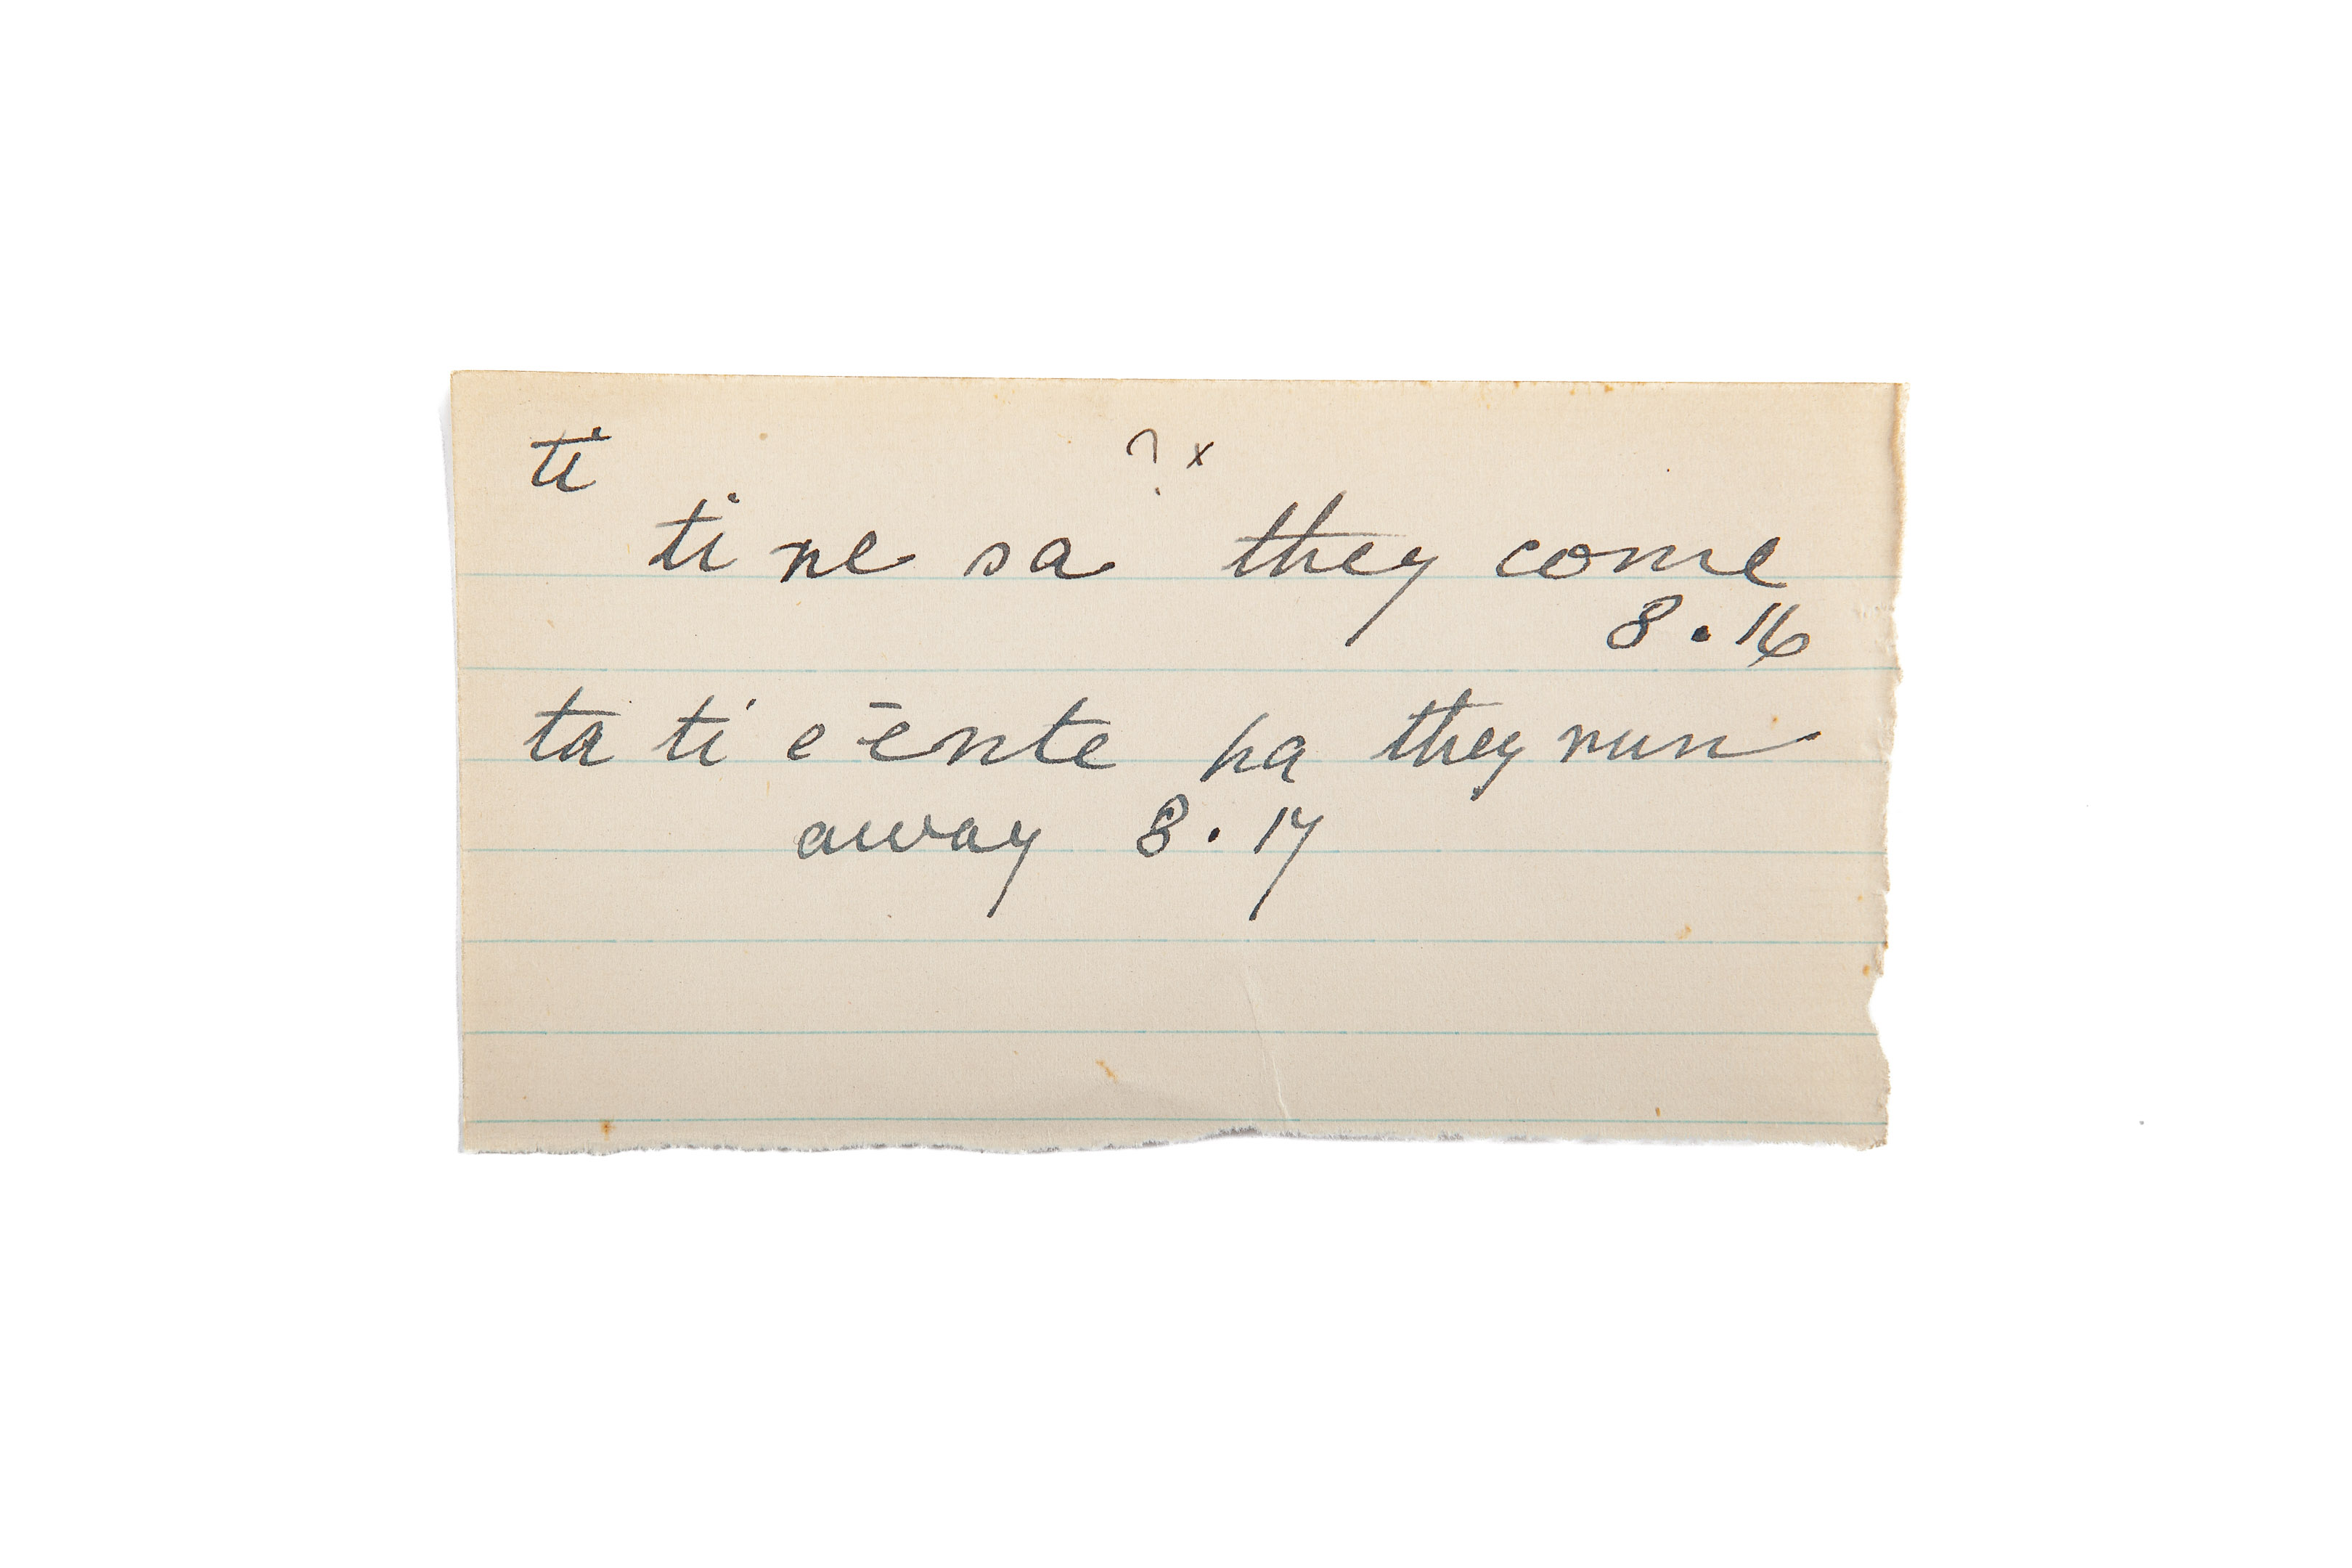 ti ? x
ti ne sa they come
8.16
ta ti e-ēnte ha they run
away 8.17